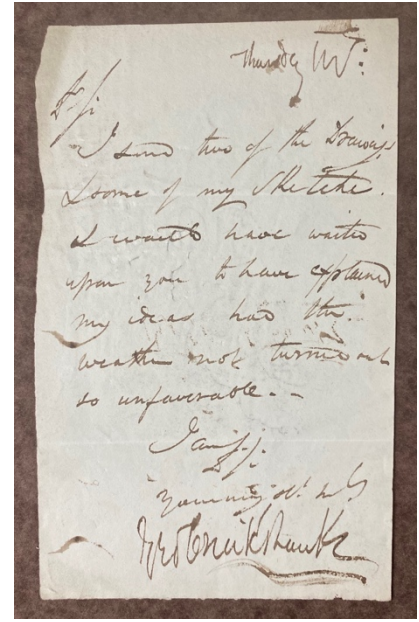 Thursday
Dr Sir
I send two of the Drawings
& some of my Sketches.
I would have waited
upon you to have explained
my ideas had the
weather not turned out
so unfavorable. -
I am Sir
Your obt
Geo Cruikshank